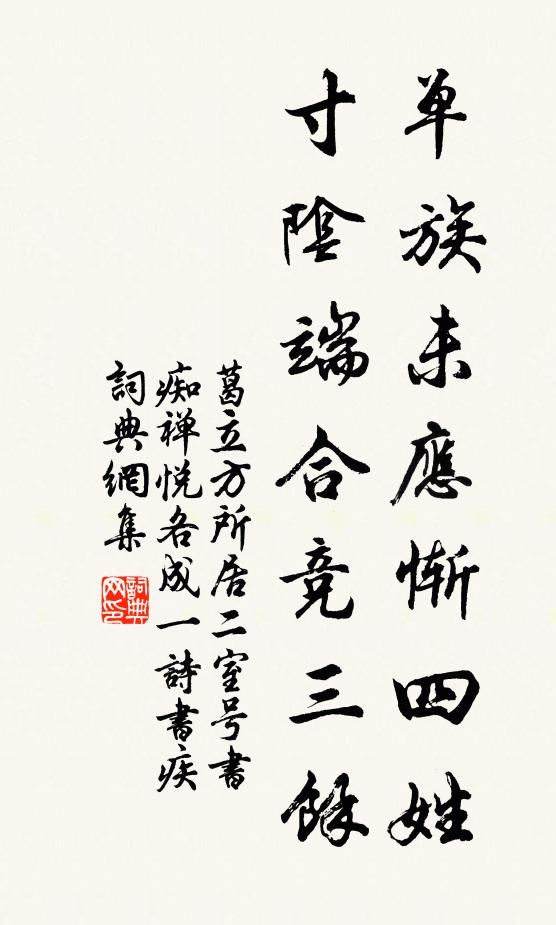 单族未應慚四姓
寸陰端合竞三餘
葛立方所居二室号書
痴禅悦各成一詩書疾
詞典網集
詞典
网印